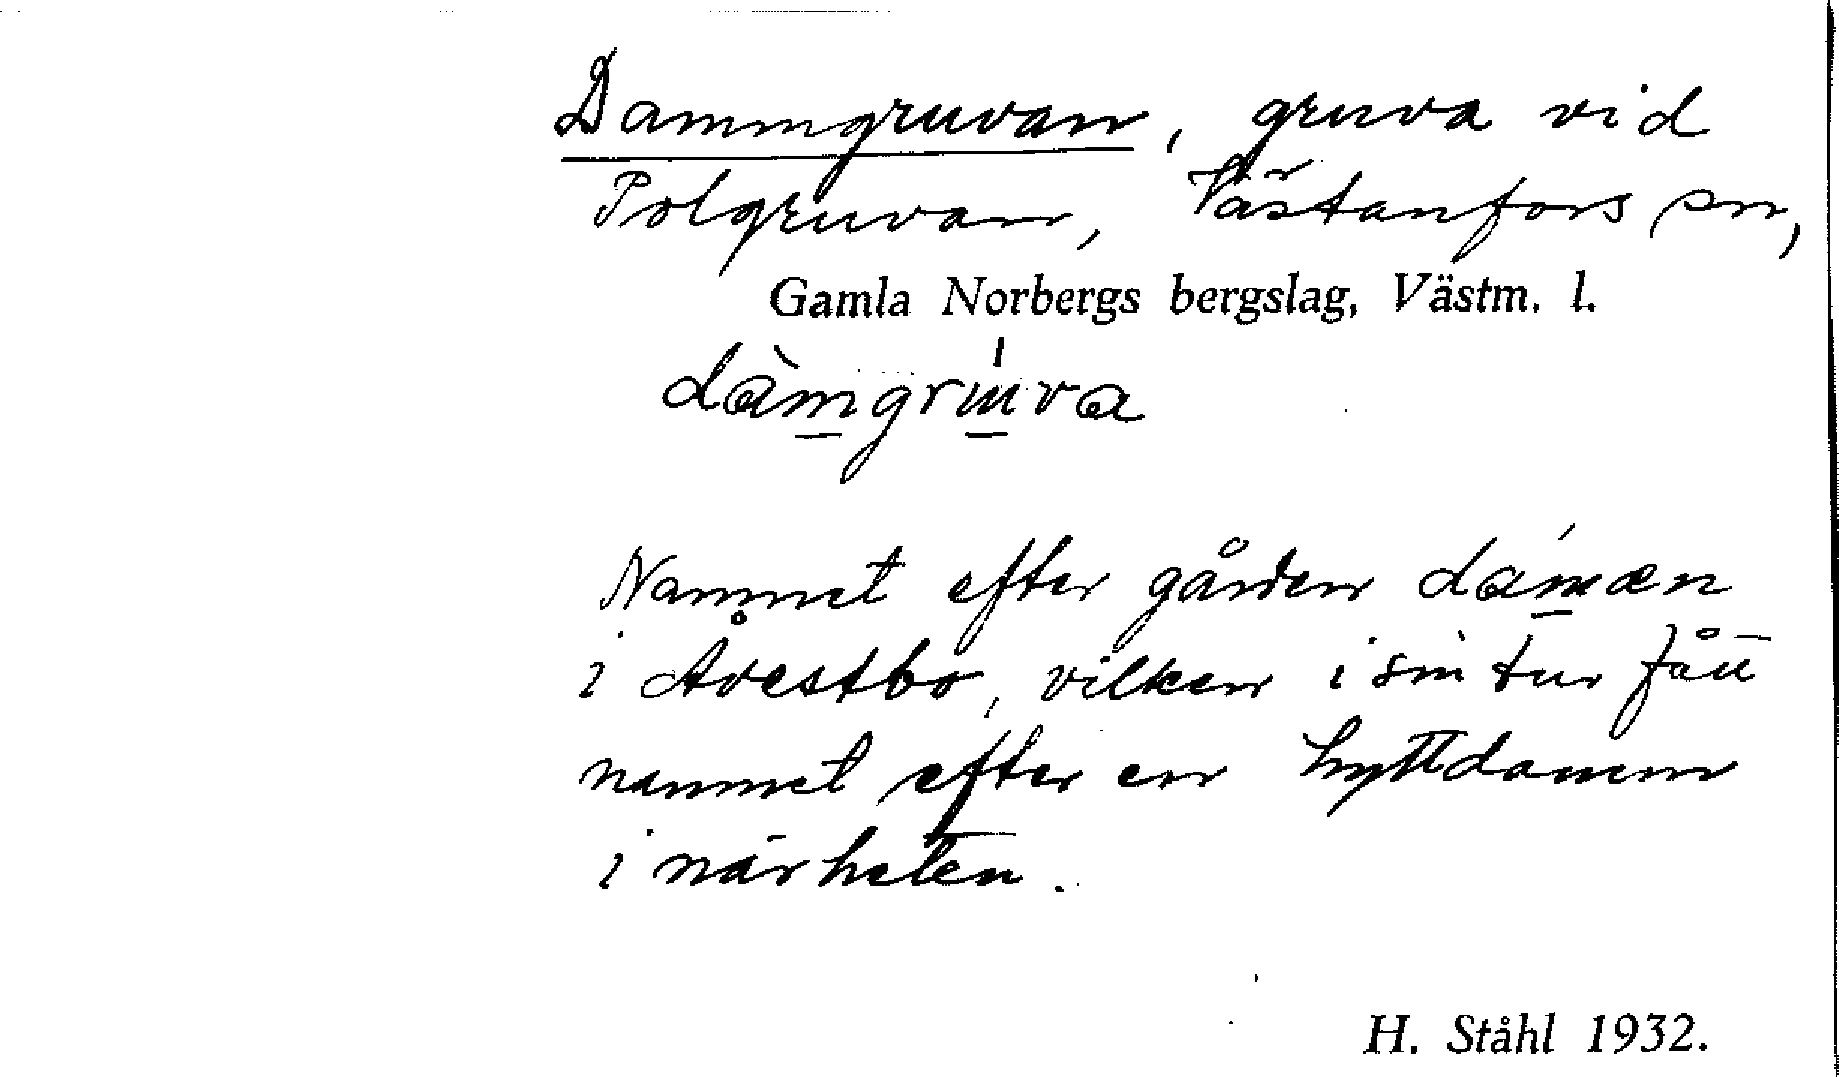 Dammgruvan, gruva vid
Polgruvan, Västanfors sn,
Gamla Norbergs bergslag, Västm. l.
dàmgrúva
Namnet efter gården dámæn
i Åvestbo, vilken i sin tur fått
namnet efter en hyttdamm
i närheten.
H. Ståhl 1932.